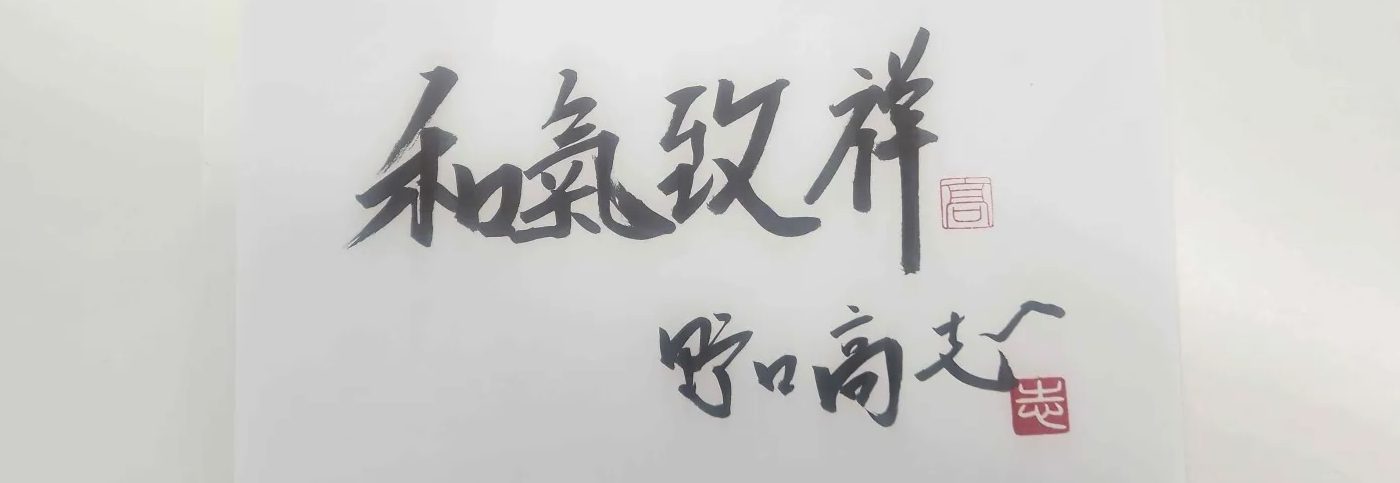 和氣致祥
高
野口高志
志